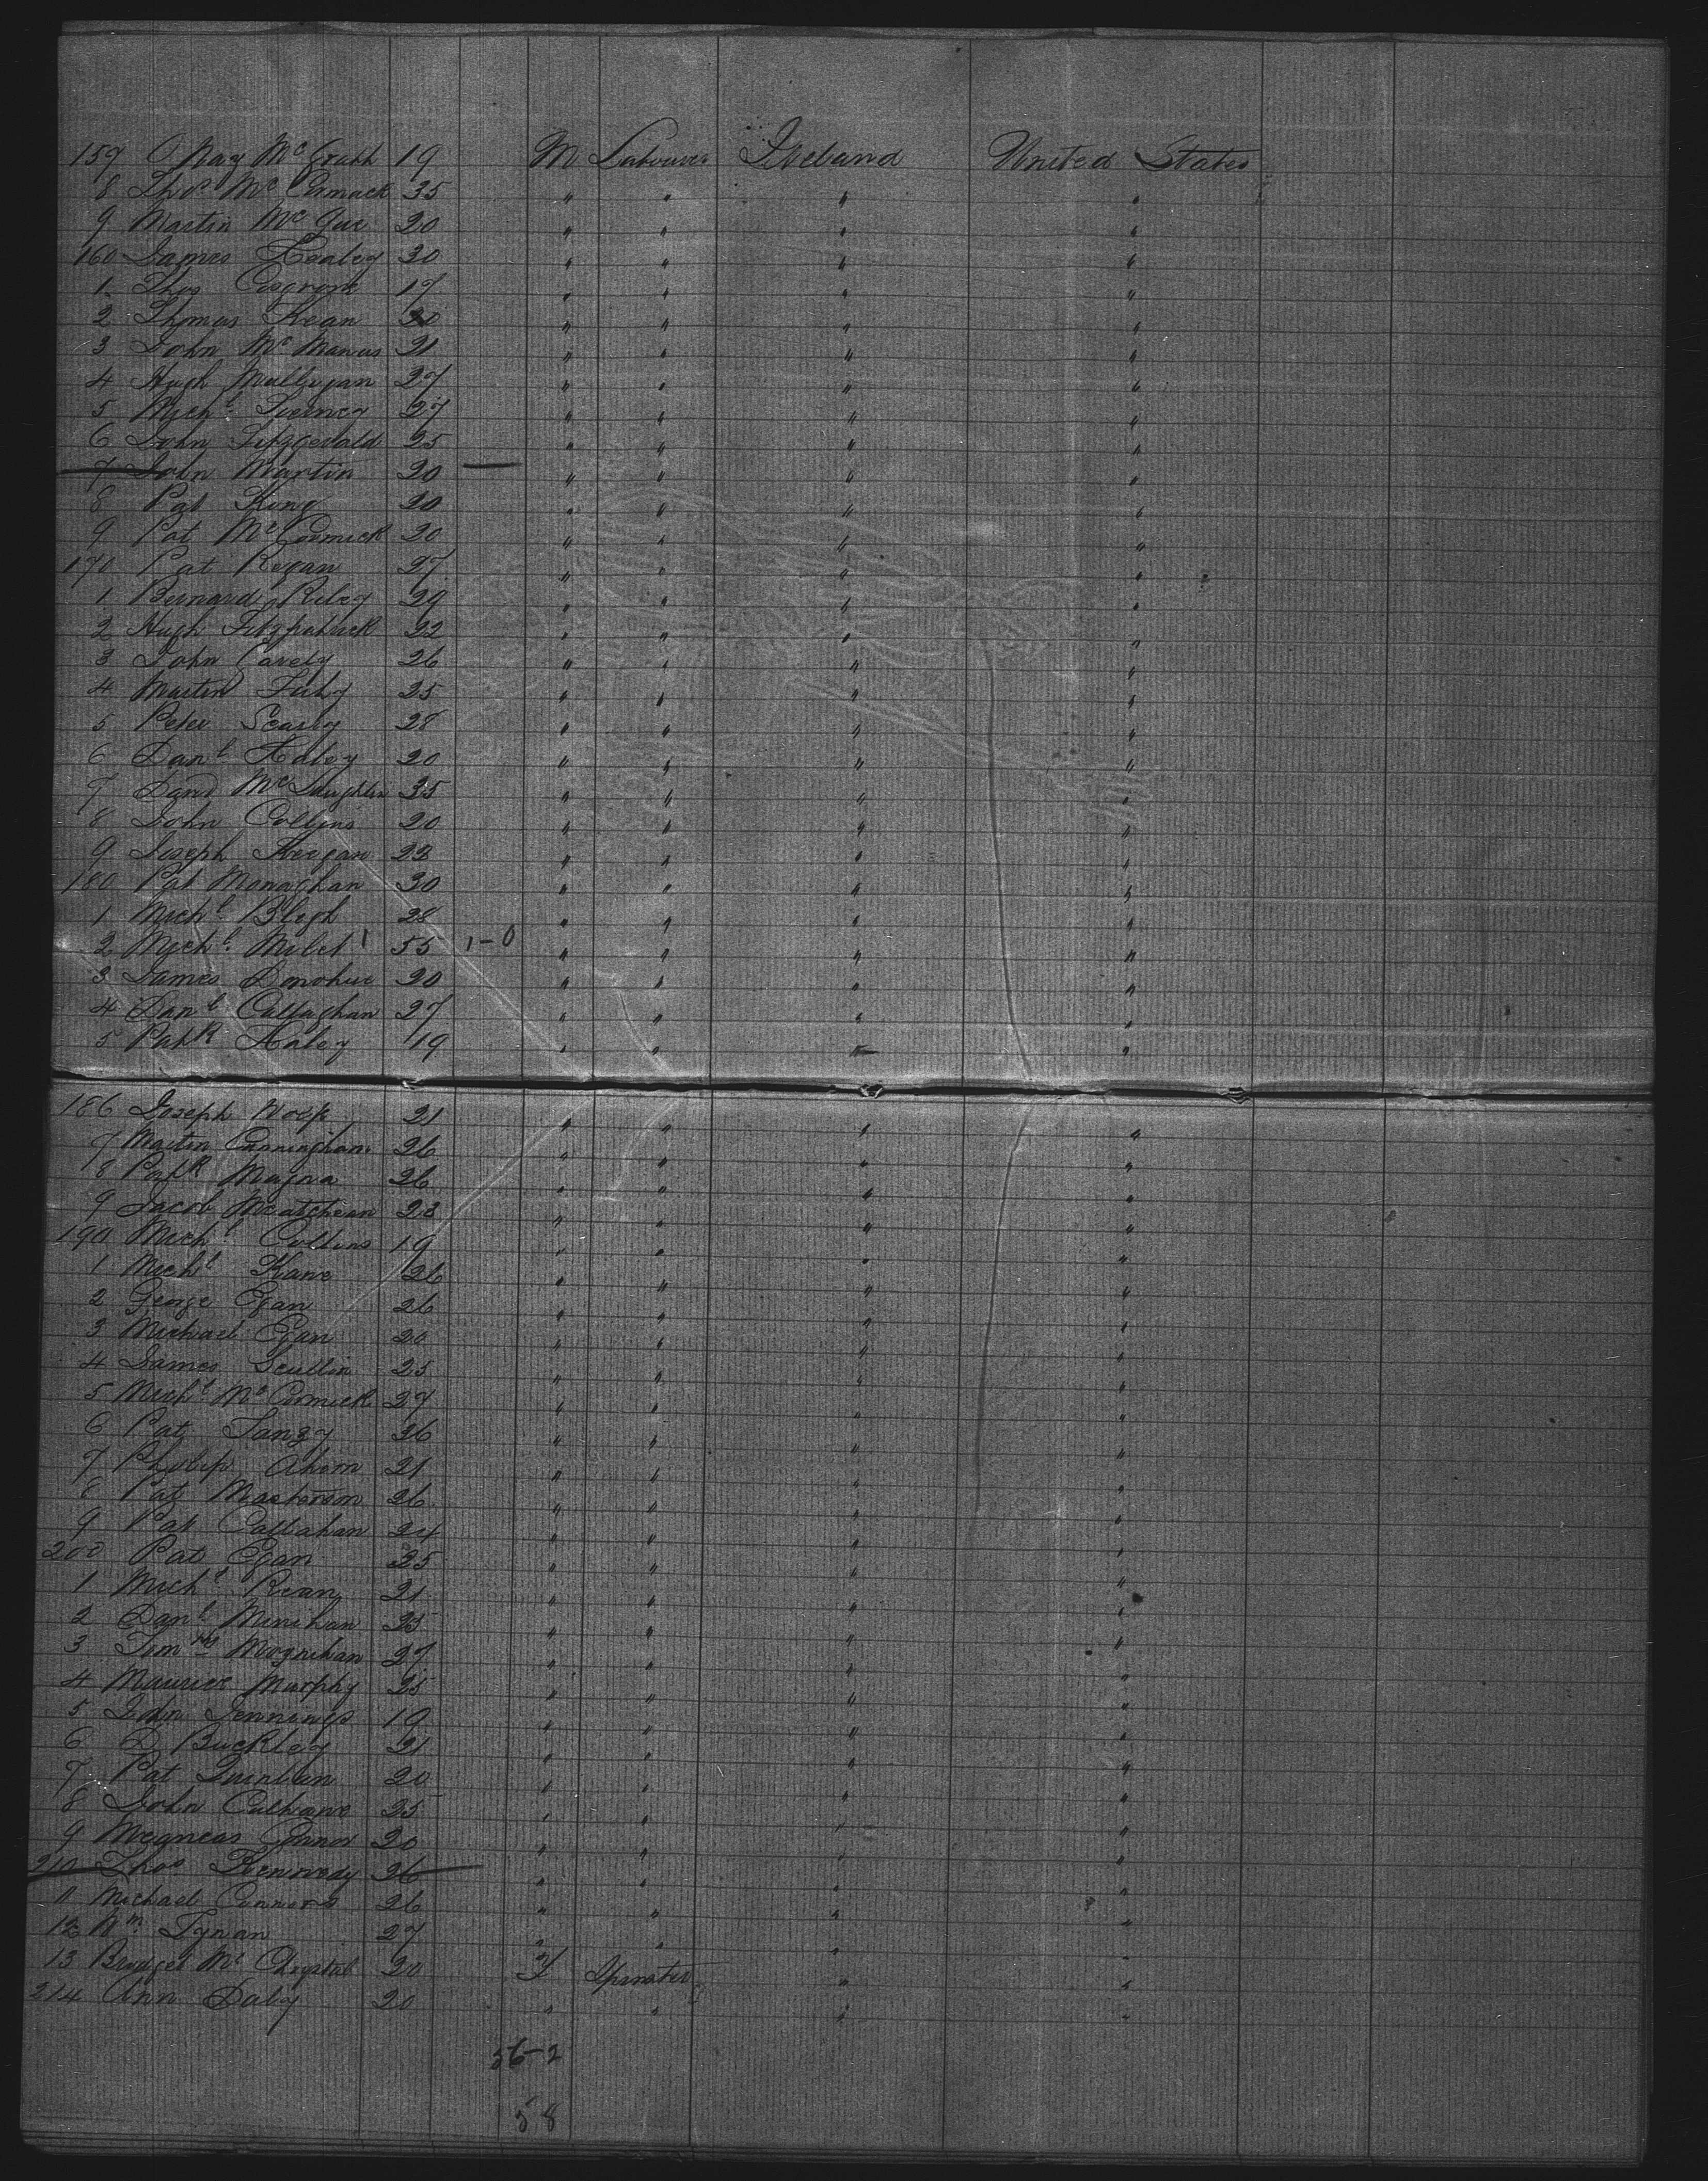 157 May Mc Grath 19 M Labourer Ireland United States
8 Thos. Mc Cormack 35 " " " "
9 Martin Mc Gue 20 " " " "
160 James Healey 30 " " " "
1 Thos Cosgrove 17 " " " "
2 Thomas Kean 20 " " " "
3 John Mc Manus 21 " " " "
4 Hugh Mulligan 27 " " " "
5 Michl. Tierney 27 " " " "
6 John Fitzgerald 25 " " " "
7 John Martin 20 — " " " "
8 Pat King 20 " " " "
9 Pat Mc Cormick 20 " " " "
170 Pat Regan 27 " " " "
1 Bernard Riley 29 " " " "
2 Hugh Fitzpatrick 22 " " " "
3 John Cavely 26 " " " "
4 Martin 25 " " " "
5 Peter Scarry 28 " " " "
6 Danl. Haley 20 " " " "
7 Mc Laughlin 35 " " " "
8 John Collins 20 " " " "
9 Joseph Keegan 22 " " " "
180 Pat Monaghan 30 " " " "
1 Michl. Bligh 28 " " " "
2 Michl. Milet 1 55 1-0 " " " "
3 James Donohue 20 " " " "
4 Danl. Callaghan 27 " " " "
5 Patk Haley 19 " " " "
186 Joseph 21 " " " "
7 Martin Cunningham 26 " " " "
8 Patk Magna 26 " " " "
9 Jacob Mcatchean 23 " " " "
190 Michl. Collins 19 " " " "
1 Michl. Kane 26 " " " "
2 George Egan 26 " " " "
3 Michael Egan 20 " " " "
4 James Scullin 25 " " " "
5 Michl. Mc Cormick 27 " " " "
6 Pat 36 " " " "
7 Philip Ahern 21 " " " "
8 Pat Masterson 26 " " " "
9 Pat Callahan 24 " " " "
200 Pat Egan 25 " " " "
1 Michl. Ryan 21 " " " "
2 Danl. Minihan 25 " " " "
3 Moynihan 27 " " " "
4 Maurice Murphy 25 " " " "
5 John Jennings 19 " " " "
6 D Buckley 21 " " " "
7 Pat Quinlan 20 " " " "
8 John Culhane 25 " " " "
9 Megneas Connor 20 " " " "
210 Thos Kennedy 26 " " " "
11 Michael Connors 26 " " " "
12 Wm. Tynan 27 " " " "
13 Bridget Mc Chrystal 20 F Spinster " "
214 Ann Daly 20 " " " "
56-2
58